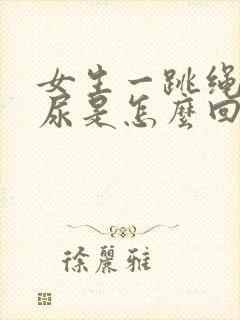 女生一跳绳
尿是怎麼回
徐麗雅